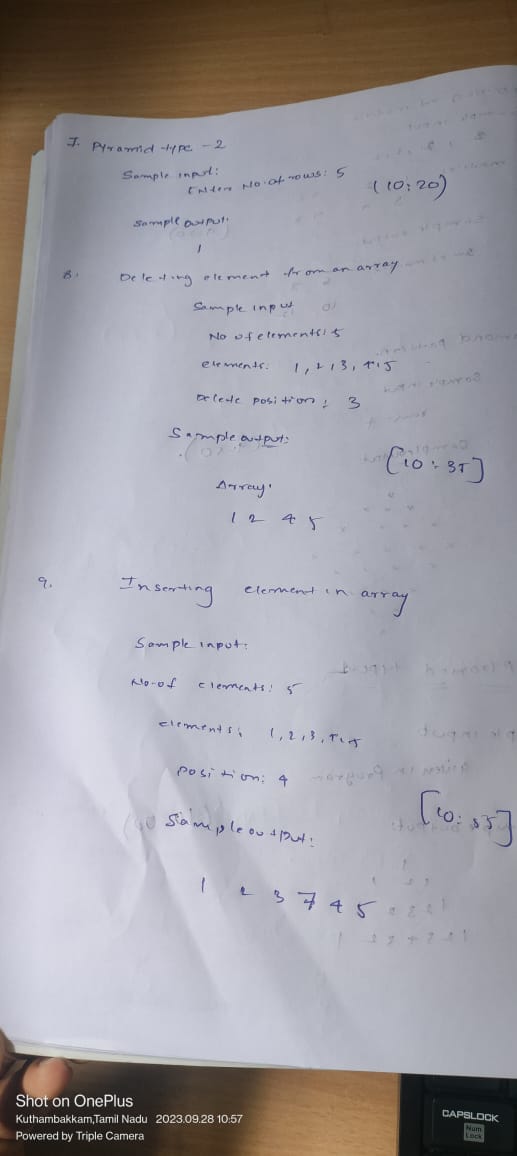 7. Pyramid type - 2
Sample input:
Enter No. of rows: 5
(10:20)
Sample output:
1
8. Deleting element from an array
Sample input
No of elements: 5
elements: 1, 2, 3, 4, 5
Delete position: 3
Sample output:
[10:35]
Array:
1 2 4 5
9. Inserting element in array
Sample input:
No. of elements: 5
elements: 1, 2, 3, 4, 5
Position: 4
[10:55]
Sample output:
1 2 3 7 4 5
Shot on OnePlus
Kuthambakkam,Tamil Nadu 2023.09.28 10:57
Powered by Triple Camera
CAPSLOCK
Num
Lock